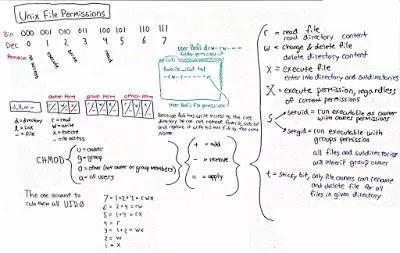 Unix File Permissions
Bin 000 001 010 011 100 101 110 111
Dec 0 1 2 3 4 5 6 7
no access
execute
write
read
User Bob's drw-rw----
favorite_cod.txt
user Bob's file permissions
owner perm group perm other perm
d,l,-
d=directory
l=link
-=file
r=read
w=write
x=execute
-=no access
Because Bob has write access to the
directory he can
and replace it with his own file by the same
name.
CHMOD
u=owner
g=group
o=other (not owner or group members)
a=all users
+ = add
- = remove
= = apply
The one account to
rule them all UID 0
7=1+2+4=rwx
6=2+4=rw
5=1+4=rx
4=r
3=1+2=wx
2=w
1=x
r = read file
read directory content
w = change & delete file
delete directory content
x = execute file
enter into directory and subdirectories
X = execute permission, regardless
of current permissions
s
setuid = run executable as owner
with owner permissions
setgid = run executable with
groups permission
all files and subdirectories
will inherit group owner
t = sticky bit, only file owners can rename
and delete file for all
files in given directory